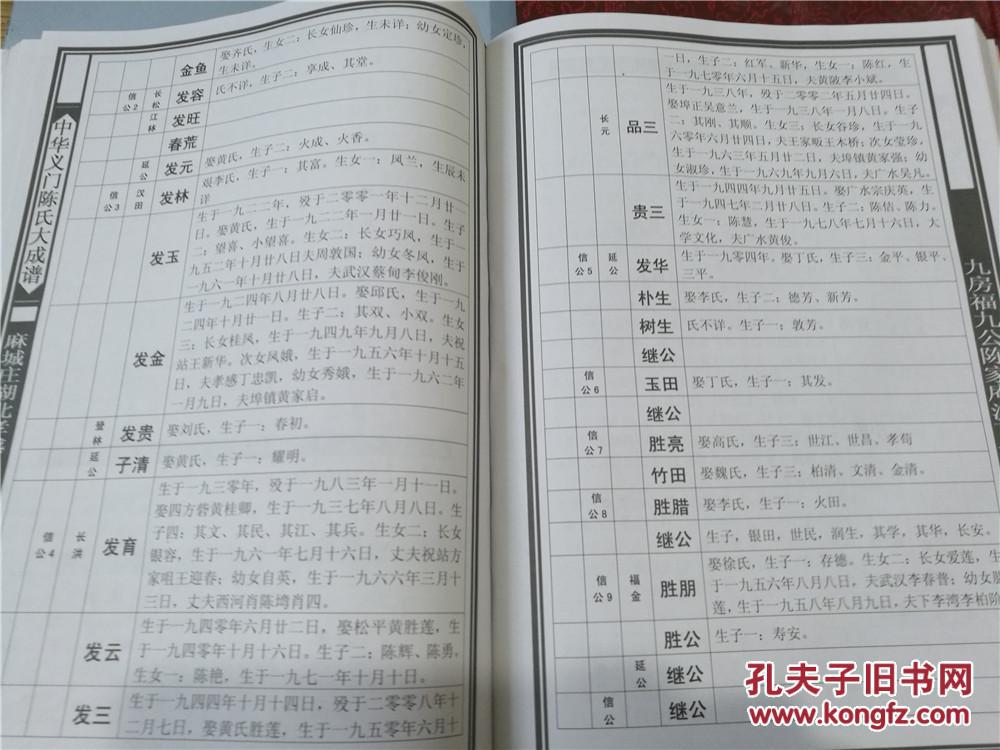 中华义门陈氏大成谱
娶齐氏，生女二：长女仙珍，生未详；幼女定珍，
生未详。
金鱼
信公2
长松
发容
氏不详，生子二：享成、其堂。
江林
发旺
春荒
延公
发元
娶黄氏，生子二：火成、火香。
信公3
汉田
发林
艰李氏，生子一：其富。生女一：凤兰，生辰未
详
发玉
生于一九二二年，殁于二零零一年十二月廿一
日。娶黄氏，生于一九二二年一月廿一日。生子
二：望喜、小望喜。生女二：长女巧凤，生于一
九五二年十月廿八日夫周敦国；幼女冬凤，生于
一九六一年十月廿八日，夫武汉蔡甸李俊刚。
发金
生于一九二四年八月廿八日。娶邱氏，生于一九
二四年十月廿一日。生子二：其双、小双。生女
三：长女桂凤，生于一九四九年九月八日，夫祝
站王新华。次女凤娥，生于一九五六年十月十五
日，夫孝感丁忠凯，幼女秀娥，生于一九六二年
一月九日，夫埠镇黄家启。
登林
发贵
娶刘氏，生子一：春初。
延公
子清
娶黄氏，生子一：耀明。
信公4
长洪
发育
生于一九三零年，殁于一九八三年一月十一日。
娶四方砦黄桂卿，生于一九三七年八月八日。生
子四：其文、其民、其江、其兵。生女二：长女
银容，生于一九六一年七月十六日，丈夫祝站方
家咀王迎春；幼女自英，生于一九六六年三月十
三日，丈夫西河肖陈塆肖四。
发云
生于一九四零年六月廿二日，娶松平黄胜莲，生
于一九四零年十月十六日。生子二：陈辉、陈勇。
生女一：陈艳，生于一九七一年十月十日。
发三
生于一九四四年十月十四日，殁于二零零八年十
二月七日，娶黄氏胜莲，生于一九五零年六月十
一日，生子二：红军、新华，生女一：陈红，生
于一九七零年六月十五日，夫黄陂李小斌。
长元
品三
生于一九三八年，殁于二零零二年五月廿四日。
娶埠正吴意兰，生于一九三八年一月八日。生子
二：其刚、其顺。生女三：长女谷珍，生于一九
六零年六月廿四日，夫王家畈王本桥；次女莹珍，
生于一九六三年五月廿二日，夫埠镇黄家强；幼
女淑珍，生于一九六九年九月六日，夫广水吴凡。
贵三
生于一九四四年九月廿五日。娶广水宗庆英，生
于一九四七年二月廿八日。生子二：陈信、陈力。
生女一：陈慧，生于一九七八年七月十六日，大
学文化，夫广水黄俊。
信公5
延公
发华
生于一九零四年。娶丁氏，生子三：金平、银平、
三平。
朴生
娶李氏，生子二：德芳、新芳。
树生
氏不详。生子一：敦芳。
继公
信公6
玉田
娶丁氏，生子一：其发。
继公
信公7
胜亮
娶高氏，生子三：世江、世昌、孝荀
竹田
娶魏氏，生子三：柏清、文清、金清。
信公8
胜腊
娶李氏，生子一：火田。
继公
生子，银田，世民，润生，其学，其华，长安。
信公9
福金
胜朋
娶徐氏，生子一：存德。生女二：长女爱莲，生
于一九五六年八月八日，夫武汉李春普；幼女
莲，生于一九五八年八月九日，夫下李湾李柏阶
胜公
生子一：寿安。
延公
继公
信公
继公
九房福九公阶家
麻城庄湖北孝
孔夫子旧书网
www.kongfz.com